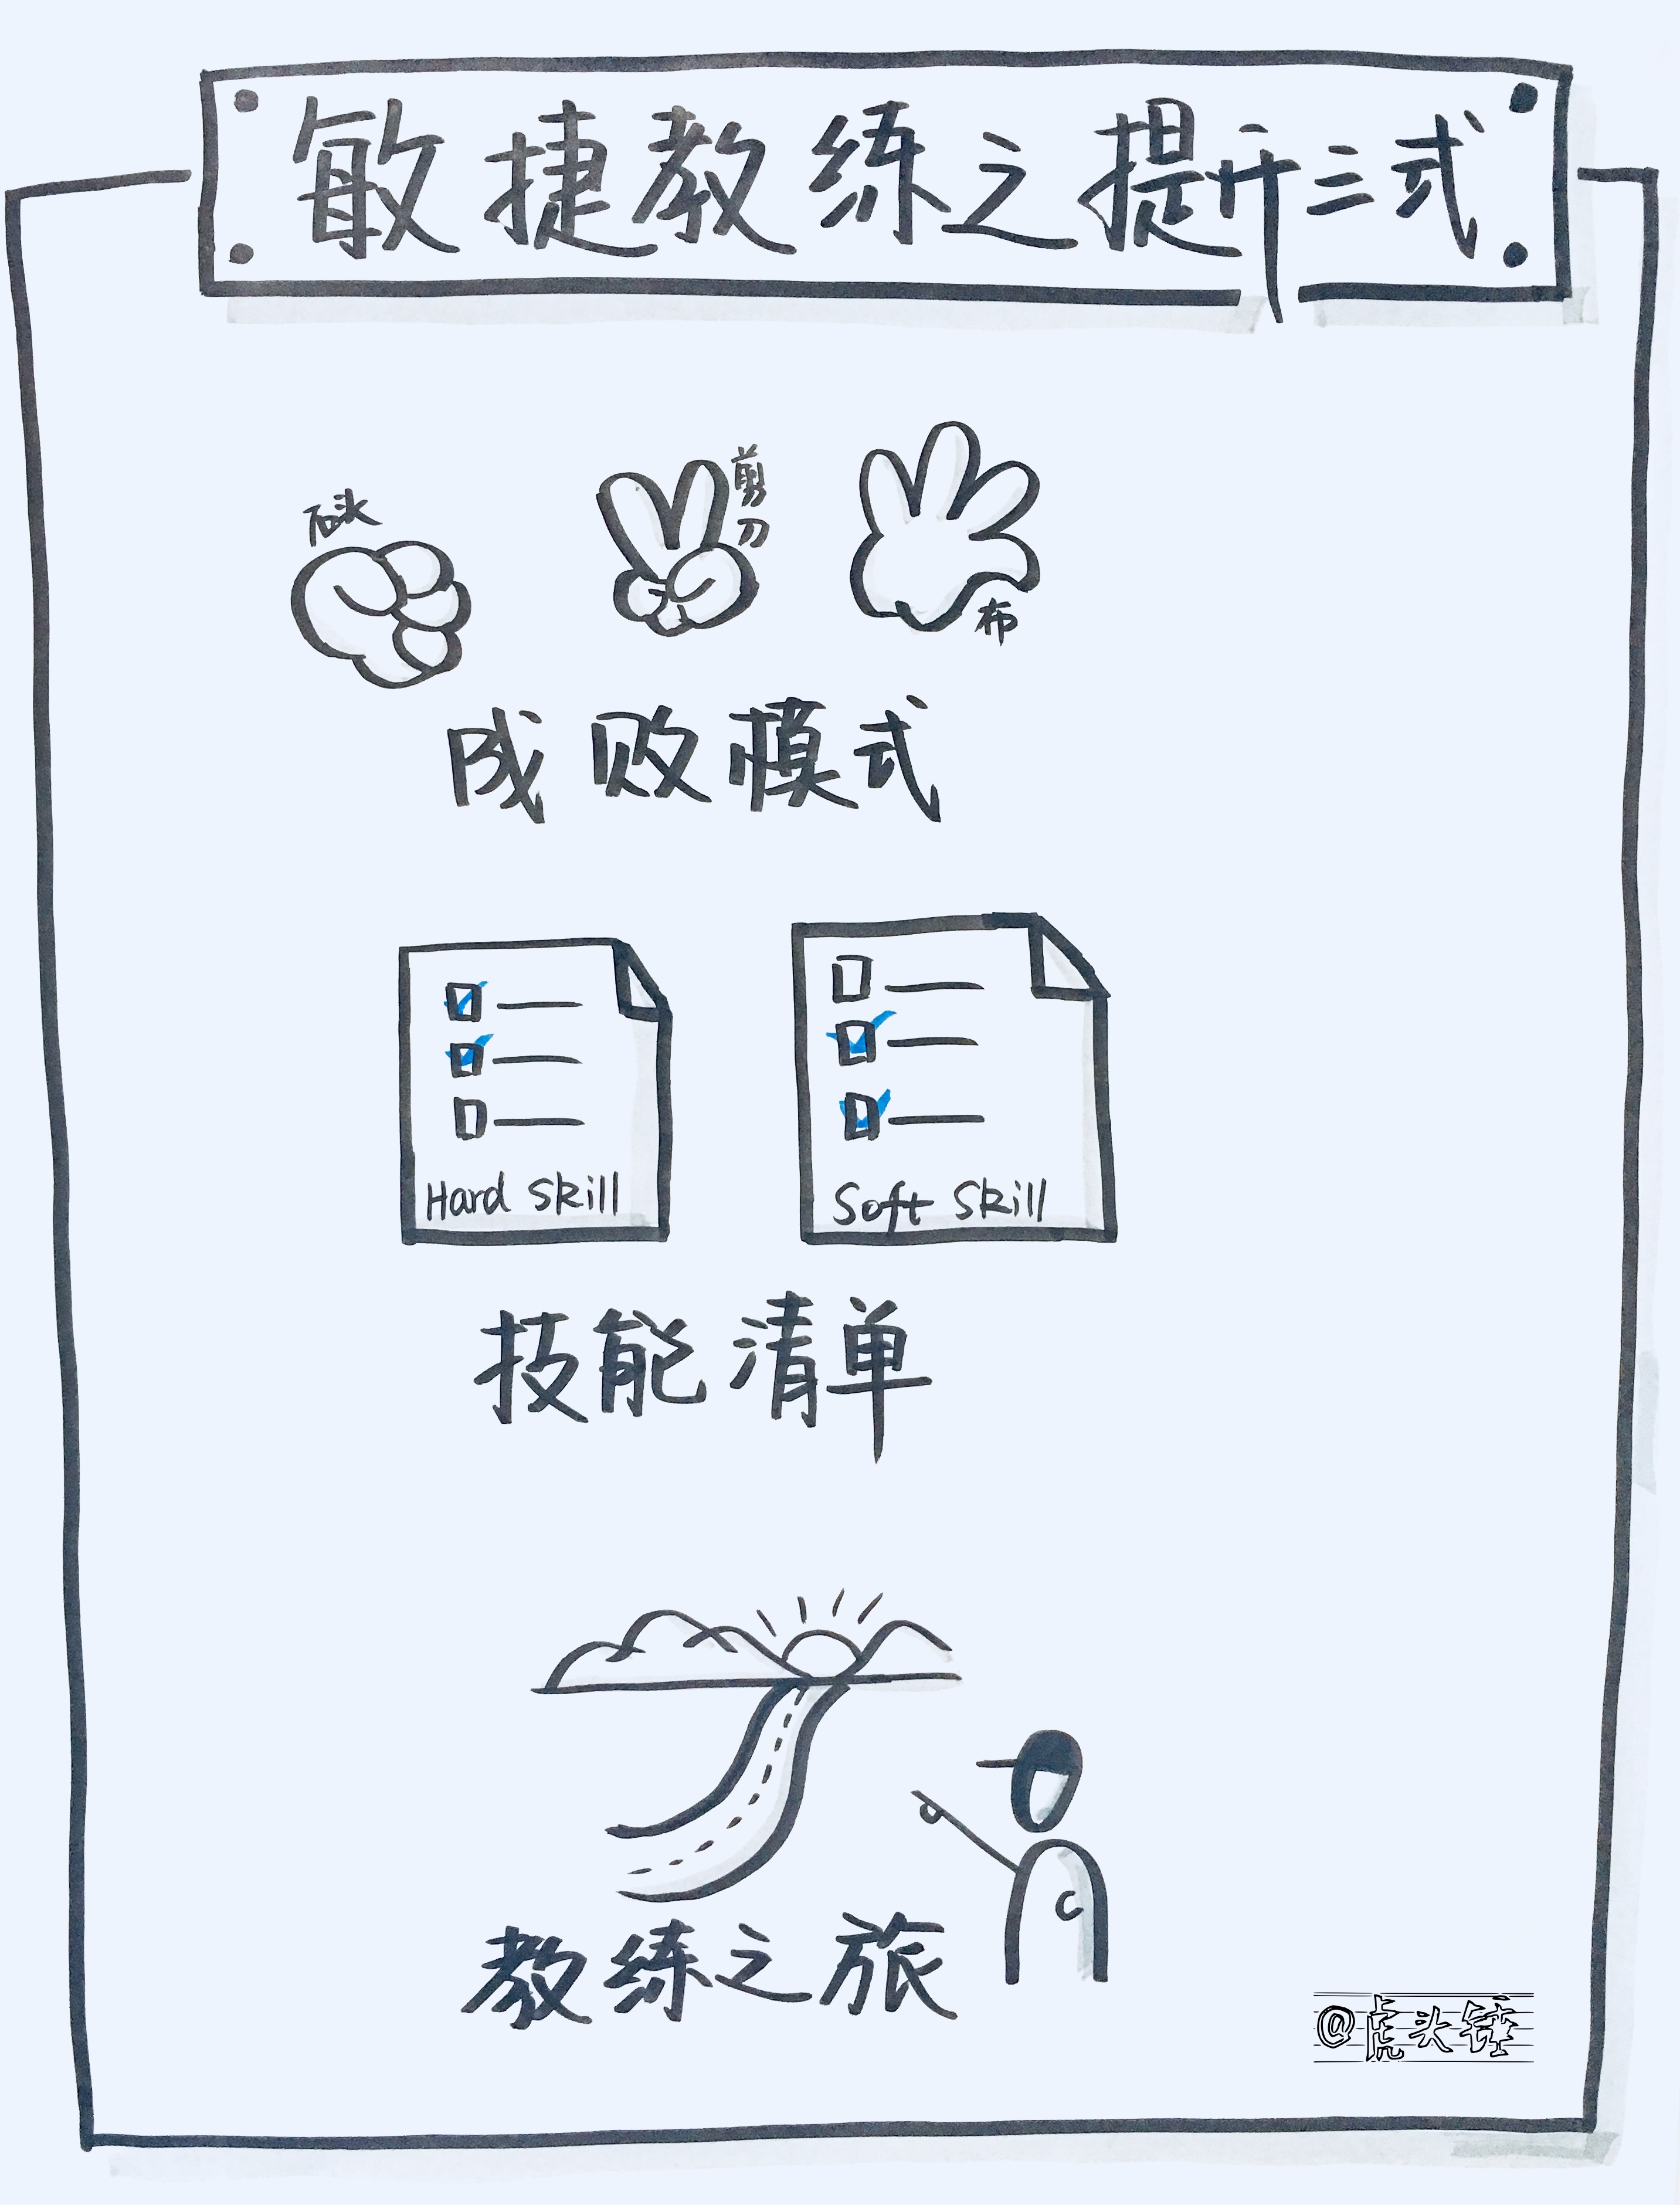 敏捷教练之提升三式
石头
剪刀
布
成败模式
Hard Skill
Soft Skill
技能清单
教练之旅
C
@虎头锤